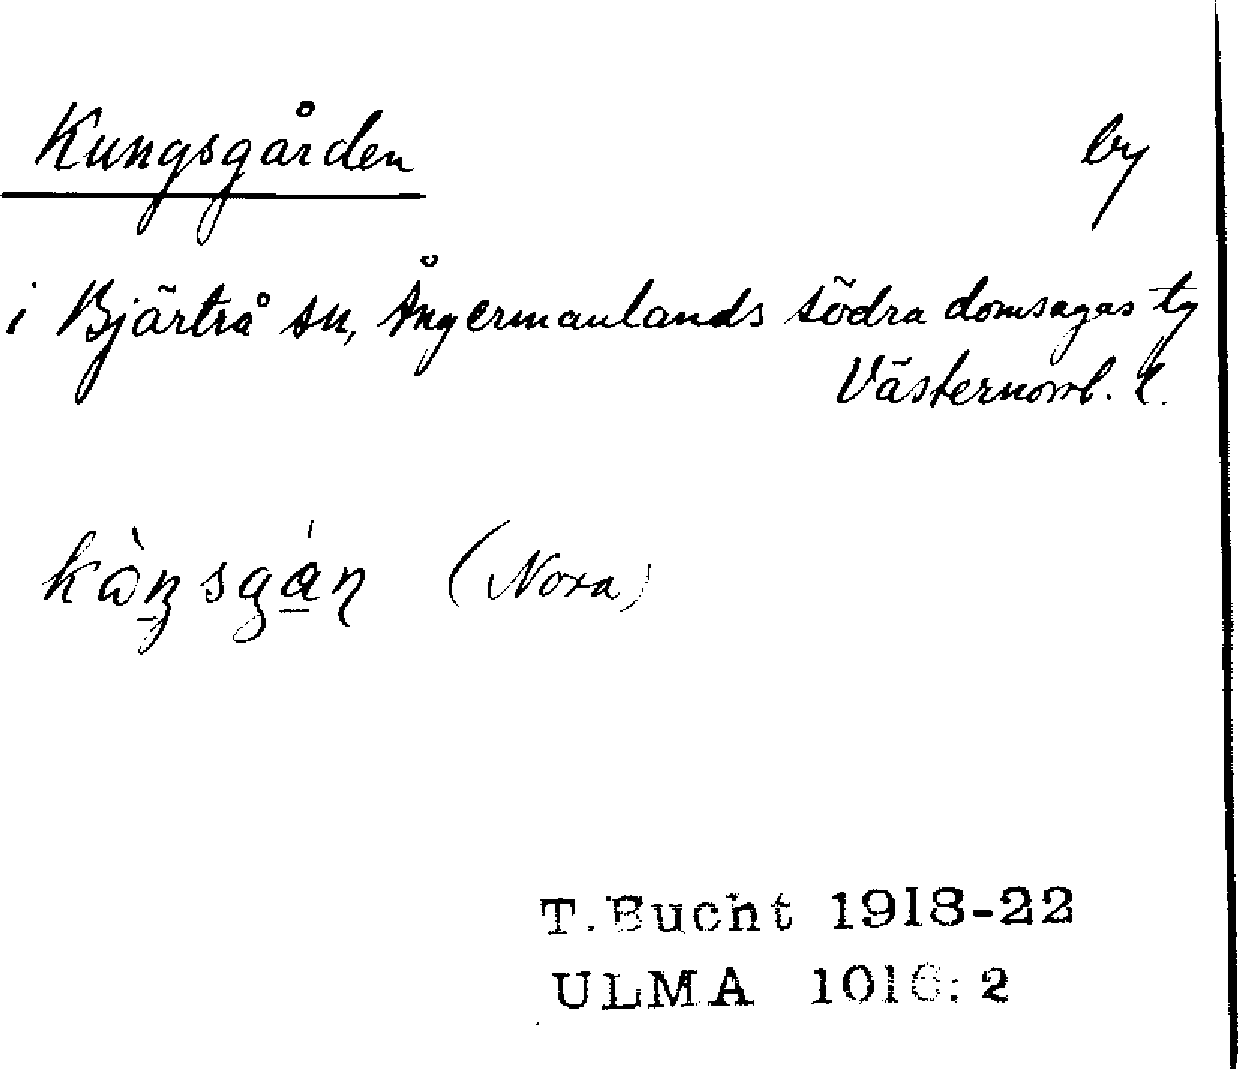 Kungsgården by
i Bjärtrå sn, Ångermanlands södra domsagas tg
Västernorrl. l.
(Nora)
T. Bucht 1918-22
ULMA 1016: 2